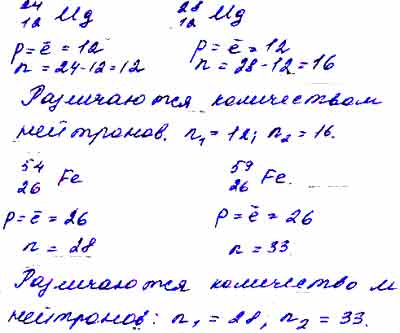 ²⁴₁₂Mg ²⁸₁₂Mg
p = ē = 12 p = ē = 12
n = 24-12 = 12 n = 28-12 = 16
Различаются количеством
нейтронов. n₁ = 12; n₂ = 16.
⁵⁴₂₆Fe ⁵⁹₂₆Fe.
p = ē = 26 p = ē = 26
n = 28 n = 33
Различаются количество м
нейтронов: n₁ = 28; n₂ = 33.